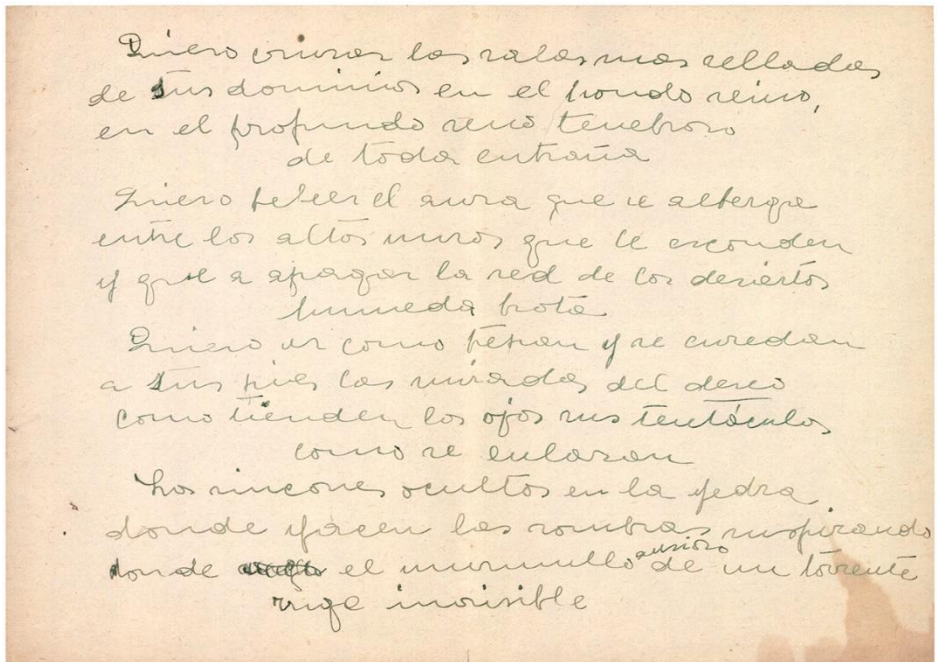 Quiero cruzar las salas mas selladas
de tus dominios en el hondo reino,
en el profundo reno tenebroso
de toda entraña
Quiero beber el aura que se alberga
entre los altos muros que te esconden
y que a apagar la sed de los desiertos
humeda brota
Quiero ver como trepan y se enredan
a tus pies las miradas del deseo
como tienden los ojos sus tentáculos
como se enlazan
Los rincones ocultos en la yedra
donde yacen las sombras suspirando
donde el murmullo ansioso de un torrente
ruge invisible